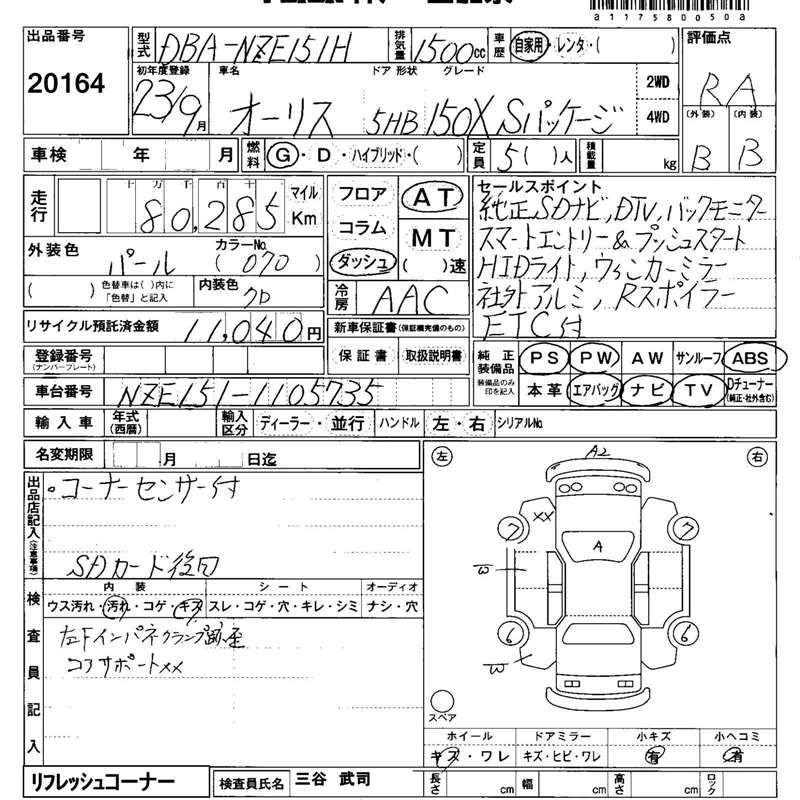 a11758005​0a
出品番号 型式 DBA-NZE151H 排気量 1500cc 車歴 自家用・レンタ・( ) 評価点
20164 RA
初年度登録 車名 ドア 形状 グレード 2WD
23/9月 オーリス 5HB 150X Sパッケージ 4WD
(外装) (内装)
車検 年 月 燃料 G・D・ハイブリッド・( ) 定員 5( )人 積載量 kg B B
走行 十 万 千 百 十 マイル
80,285 Km
フロア AT
コラム MT
ダッシュ ( )速
セールスポイント
純正SDナビ,DTV,バックモニター
スマートエントリー&プッシュスタート
HIDライト,ウィンカーミラー
社外アルミ,Rスポイラー
ETC付
外装色 パール カラーNo. (070)
( ) 色替車は( )内に「色替」と記入 内装色 クロ
冷房 AAC
リサイクル預託済金額 11,040円
新車保証書(保証継続完備のもの)
保証書 取扱説明書
登録番号(ナンバープレート)
純正装備品 PS PW AW サンルーフ ABS
装備品のみ印を記入 本革 エアバッグ ナビ TV Dチューナー(純正・社外含む)
車台番号 NZE151-1105735
輸入車 年式(西暦) 輸入区分 ディーラー・並行 ハンドル 左・右 シリアルNo.
名変期限 月 日迄
出品店記入(注意事項)
。コーナーセンサー付
SDカード後日
検査員記入
内装 シート オーディオ
ウス汚れ・汚れ・コゲ・キズ スレ・コゲ・穴・キレ・シミ ナシ・穴
左Fインパネクランプ跡歪
コアサポートXX
左 A2 右
7 XX 7
A
W
6 6
W
スペア
ホイール ドアミラー 小キズ 小ヘコミ
キズ・ワレ キズ・ヒビ・ワレ 有 有
リフレッシュコーナー 検査員氏名 三谷 武司 長さ cm 幅 cm 高さ cm ロック